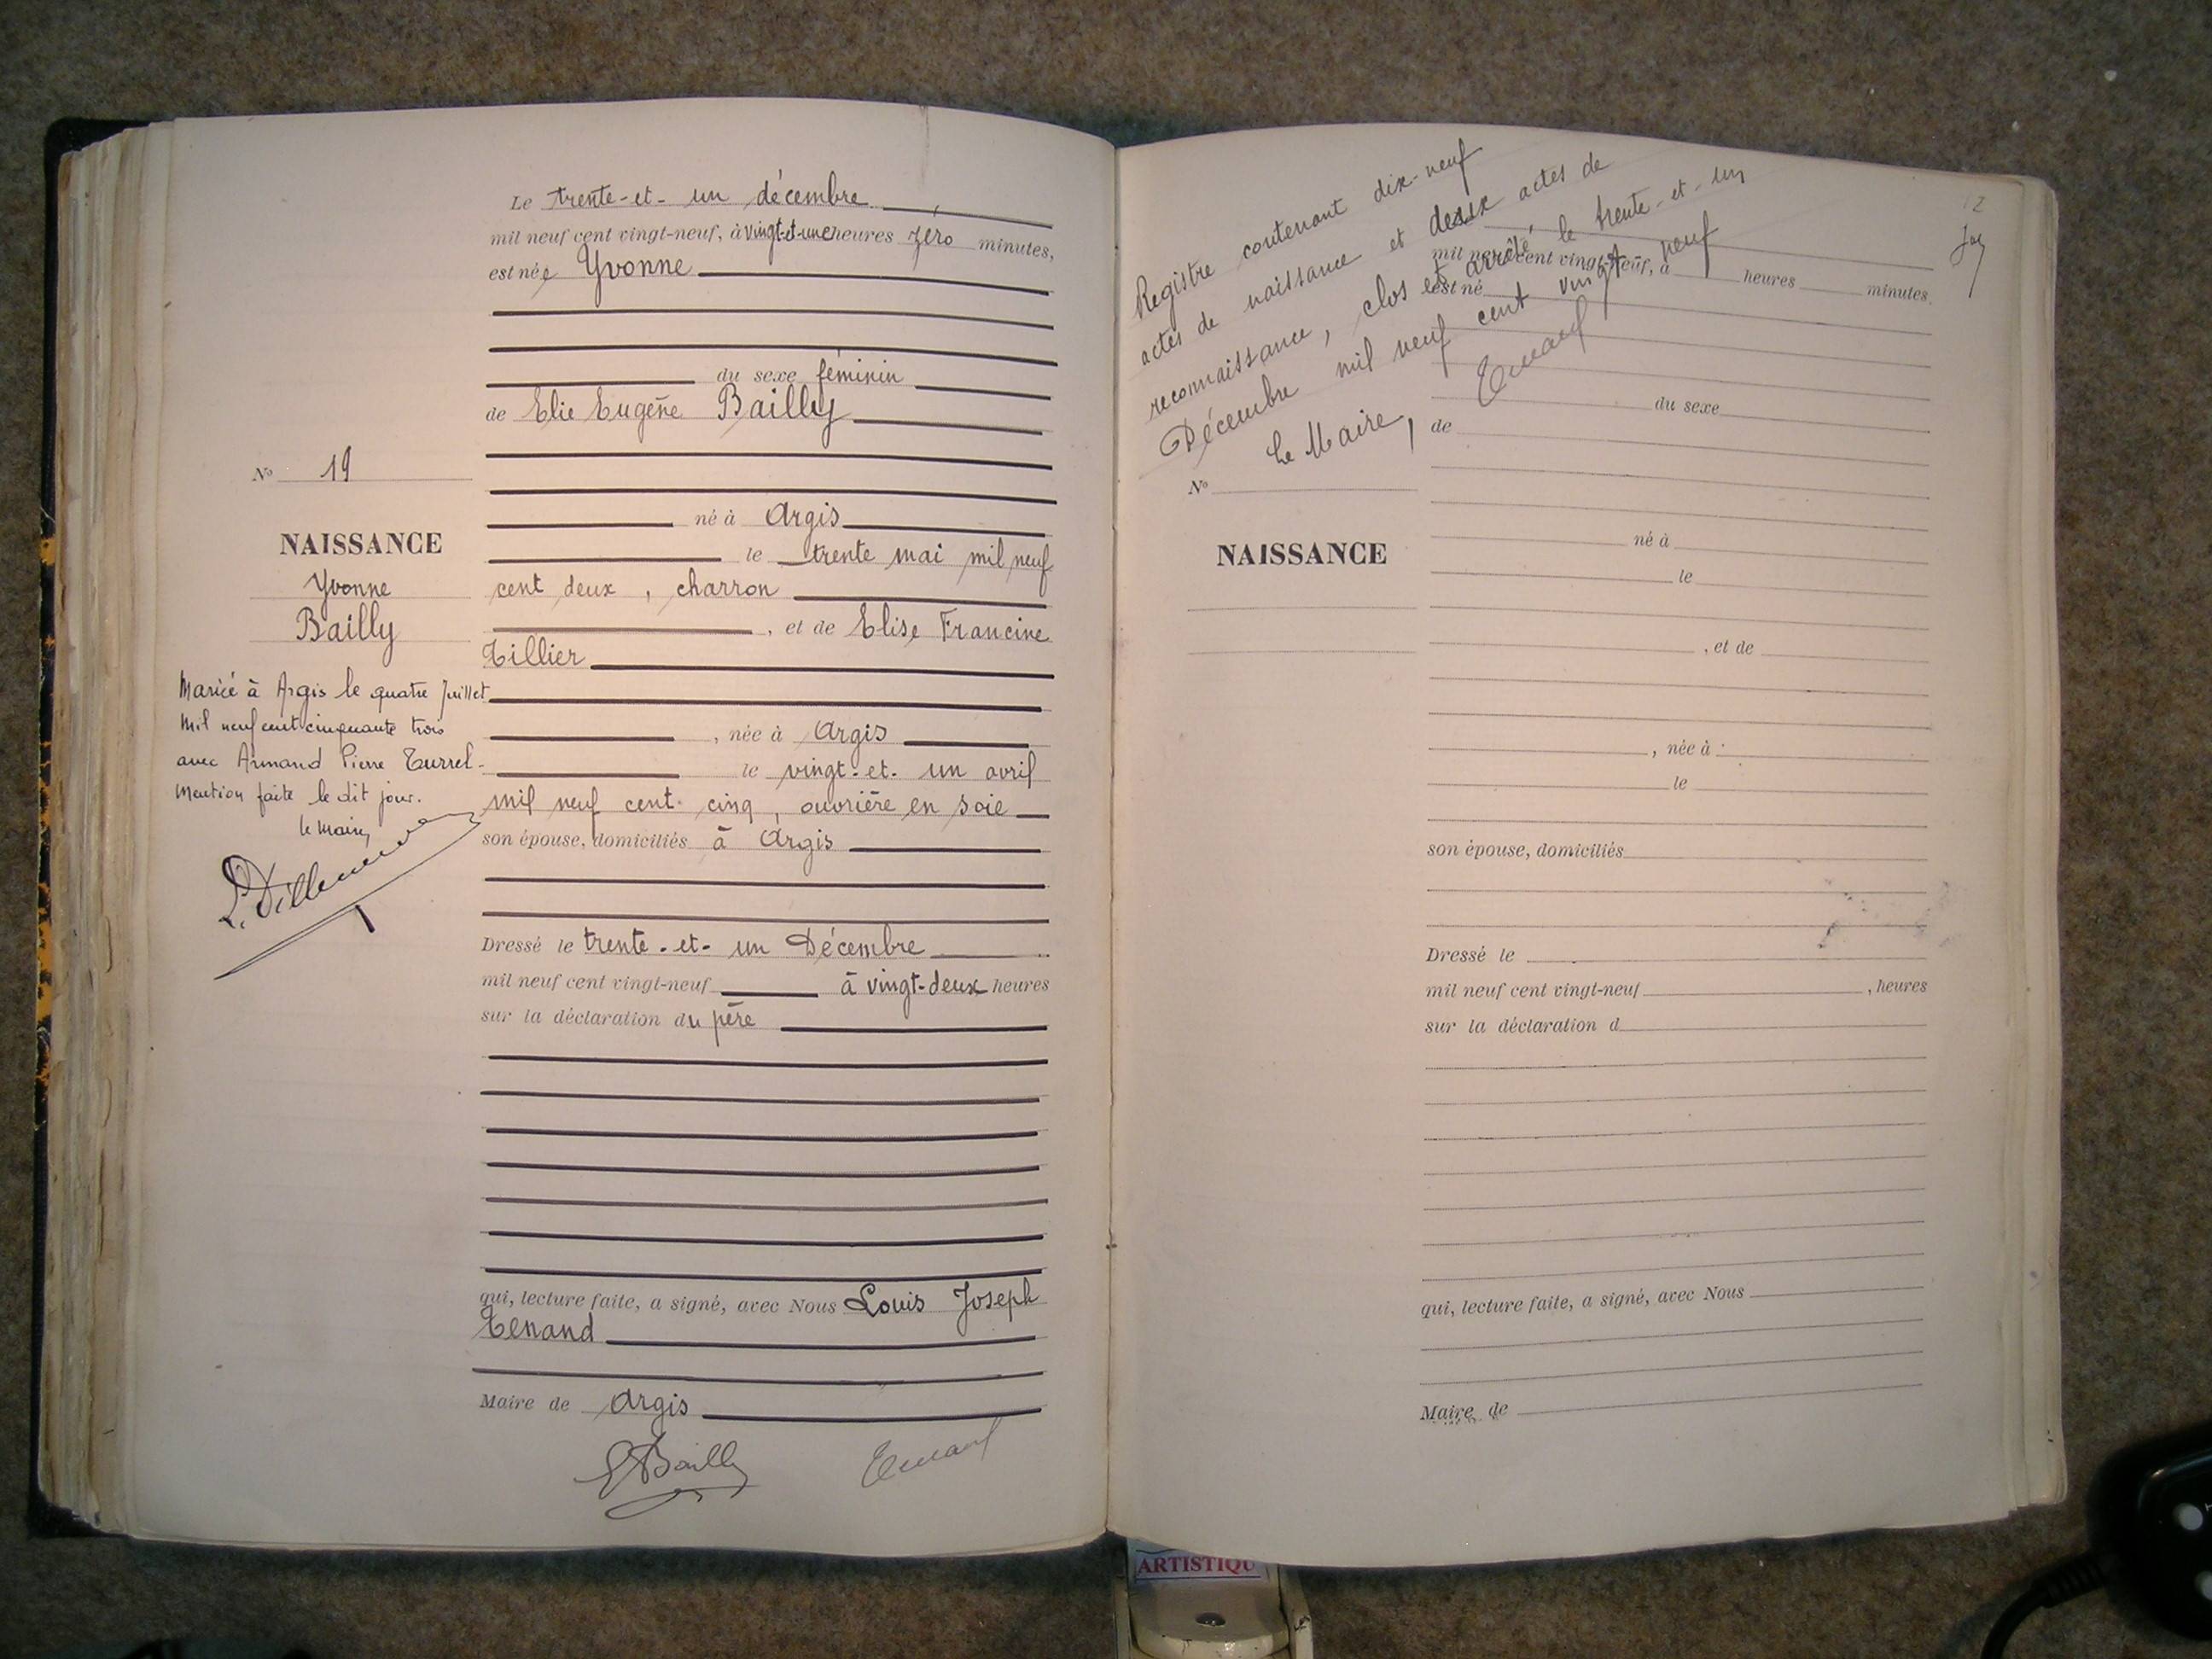 Le trente-et-un décembre
mil neuf cent vingt-neuf, à vingt-et-une heures zéro minutes,
est née Yvonne
du sexe féminin
de Elie Eugène Bailly
né à Argis
le trente mai mil neuf
cent deux, charron
, et de Elise Francine
Tillier
, née à Argis
le vingt-et-un avril
mil neuf cent cinq, ouvrière en soie
son épouse, domiciliés à Argis
Dressé le trente-et-un Décembre
mil neuf cent vingt-neuf à vingt-deux heures
sur la déclaration du père
qui, lecture faite, a signé, avec Nous Louis Joseph
Tenand
Maire de Argis
EBailly Tenand
No 19
NAISSANCE
Yvonne
Bailly
Mariée à Argis le quatre Juillet
Mil neuf cent cinquante trois
avec Armand Pierre Turrel-
Mention faite le dit jour.
le Maire,
Registre contenant dix-neuf
actes de naissance et deux actes de
reconnaissance, clos et arrêté le trente-et-un
Décembre mil neuf cent vingt neuf
Le Maire,
Tenand
12
mil neuf cent vingt-neuf, à heures minutes.
est né
du sexe
de
No
NAISSANCE
né à
le
, et de
, née à
le
son épouse, domiciliés
Dressé le
mil neuf cent vingt-neuf , heures
sur la déclaration d
qui, lecture faite, a signé, avec Nous
Maire de
ARTISTIQU